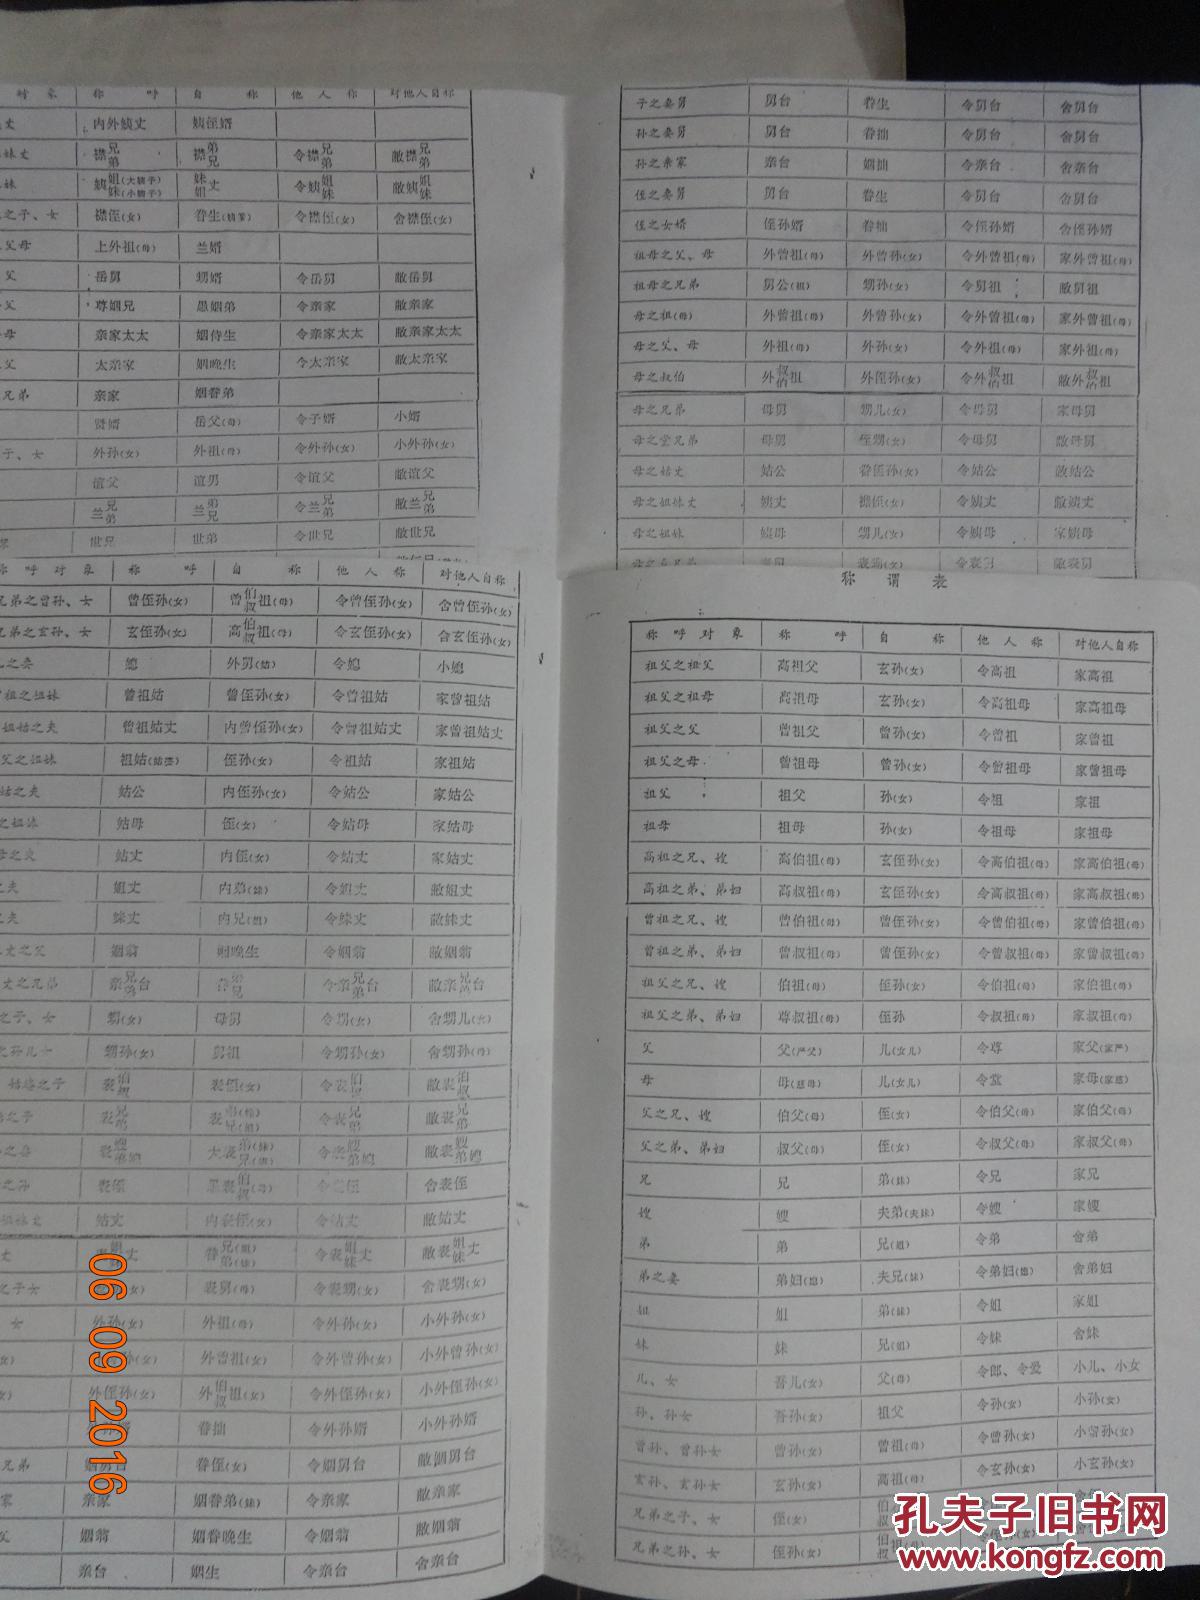 对象 称呼 自称 他人称 对他人自称
丈 内外姨丈 姨侄婿
妹丈 襟兄弟 襟弟兄 令襟兄弟 敝襟兄弟
妹 姨姐(大姨子)妹(小姨子) 妹姐丈 令姨姐妹 敝姨姐妹
之子、女 襟侄(女) 眷生 令襟侄(女) 舍襟侄(女)
父母 上外祖(母) 兰婿
父 岳舅 甥婿 令岳舅 敝岳舅
父 尊姻兄 愚姻弟 令亲家 敝亲家
母 亲家太太 姻侍生 令亲家太太 敝亲家太太
父 太亲家 姻晚生 令太亲家 敝太亲家
兄弟 亲家 姻眷弟
贤婿 岳父(母) 令子婿 小婿
子、女 外孙(女) 外祖(母) 令外孙(女) 小外孙(女)
谊父 谊男 令谊父 敝谊父
兰兄弟 兰弟兄 令兰兄弟 敝兰兄弟
世兄 世弟 令世兄 敝世兄
子之妻舅 舅台 眷生 令舅台 舍舅台
孙之妻舅 舅台 眷拙 令舅台 舍舅台
孙之亲家 亲台 姻拙 令亲台 舍亲台
侄之妻舅 舅台 眷生 令舅台 舍舅台
侄之女婿 侄孙婿 眷拙 令侄孙婿 舍侄孙婿
祖母之父、母 外曾祖(母) 外曾孙(女) 令外曾祖(母) 家外曾祖(母)
祖母之兄弟 舅公(祖) 甥孙(女) 令舅祖 敝舅祖
母之祖(母) 外曾祖(母) 外曾孙(女) 令外曾祖(母) 家外曾祖(母)
母之父、母 外祖(母) 外孙(女) 令外祖(母) 家外祖(母)
母之叔伯 外叔伯祖 外侄孙(女) 令外叔伯祖 敝外叔伯祖
母之兄弟 母舅 甥儿(女) 令母舅 家母舅
母之堂兄弟 母舅 侄甥(女) 令母舅 敝母舅
母之姑丈 姑公 眷侄孙(女) 令姑公 敝姑公
母之姐妹丈 姨丈 襟侄(女) 令姨丈 敝姨丈
母之姐妹 姨母 甥儿(女) 令姨母 家姨母
称呼对象 称呼 自称 他人称 对他人自称
兄弟之曾孙、女 曾侄孙(女) 曾伯叔祖(母) 令曾侄孙(女) 舍曾侄孙(女)
兄弟之玄孙、女 玄侄孙(女) 高伯叔祖(母) 令玄侄孙(女) 舍玄侄孙(女)
之妻 媳 外舅(姑) 令媳 小媳
曾祖之姐妹 曾祖姑 曾侄孙(女) 令曾祖姑 家曾祖姑
祖姑之夫 曾祖姑丈 内曾侄孙(女) 令曾祖姑丈 家曾祖姑丈
父之姐妹 祖姑(姑婆) 侄孙(女) 令祖姑 家祖姑
姑之夫 姑公 内侄孙(女) 令姑公 家姑公
之姐妹 姑母 侄(女) 令姑母 家姑母
母之夫 姑丈 内侄(女) 令姑丈 家姑丈
之夫 姐丈 内弟(妹) 令姐丈 敝姐丈
之夫 妹丈 内兄(姐) 令妹丈 敝妹丈
丈之父 姻翁 姻晚生 令姻翁 敝姻翁
丈之兄弟 亲兄弟台 眷弟兄 令亲兄弟台 敝亲兄弟台
之子、女 甥(女) 母舅 令甥(女) 舍甥儿(女)
甥孙(女) 舅祖 令甥孙(女) 舍甥孙(女)
之子 表伯叔 表侄(女) 令表伯叔 敝表伯叔
之子 表兄弟 令表兄弟 敝表兄弟
之妻 表嫂弟媳 令表嫂弟媳 敝表嫂弟媳
之孙 表侄 表伯叔(母) 令表侄 舍表侄
姐妹丈 姑丈 内表侄(女) 令姑丈 敝姑丈
丈 表姐妹丈 眷兄(姐)弟(妹) 令表姐妹丈 敝表姐妹丈
之子女 表舅(母) 令表甥(女) 舍表甥(女)
女 外孙(女) 外祖(母) 令外孙(女) 小外孙(女)
外曾祖(女) 令外曾孙(女) 小外曾孙(女)
外侄孙(女) 外伯叔祖(女) 令外侄孙(女) 小外侄孙(女)
外孙婿 眷拙 令外孙婿 小外孙婿
兄弟 姻舅台 眷侄(女) 令姻舅台 敝姻舅台
家 亲家 姻眷弟(妹) 令亲家 敝亲家
父 姻翁 姻眷晚生 令姻翁 敝姻翁
亲台 姻生 令亲台 舍亲台
称谓表
称呼对象 称呼 自称 他人称 对他人自称
祖父之祖父 高祖父 玄孙(女) 令高祖 家高祖
祖父之祖母 高祖母 玄孙(女) 令高祖母 家高祖母
祖父之父 曾祖父 曾孙(女) 令曾祖 家曾祖
祖父之母 曾祖母 曾孙(女) 令曾祖母 家曾祖母
祖父 祖父 孙(女) 令祖 家祖
祖母 祖母 孙(女) 令祖母 家祖母
高祖之兄、嫂 高伯祖(母) 玄侄孙(女) 令高伯祖(母) 家高伯祖(母)
高祖之弟、弟妇 高叔祖(母) 玄侄孙(女) 令高叔祖(母) 家高叔祖(母)
曾祖之兄、嫂 曾伯祖(母) 曾侄孙(女) 令曾伯祖(母) 家曾伯祖(母)
曾祖之弟、弟妇 曾叔祖(母) 曾侄孙(女) 令曾叔祖(母) 家曾叔祖(母)
祖父之兄、嫂 伯祖(母) 侄孙(女) 令伯祖(母) 家伯祖(母)
祖父之弟、弟妇 尊叔祖(母) 侄孙 令叔祖(母) 家叔祖(母)
父 父(严父) 儿(女儿) 令尊 家父(家严)
母 母(慈母) 儿(女儿) 令堂 家母(家慈)
父之兄、嫂 伯父(母) 侄(女) 令伯父(母) 家伯父(母)
父之弟、弟妇 叔父(母) 侄(女) 令叔父(母) 家叔父(母)
兄 兄 弟(妹) 令兄 家兄
嫂 嫂 夫弟(夫妹) 令嫂 家嫂
弟 弟 兄(姐) 令弟 舍弟
弟之妻 弟妇(媳) 夫兄(妹) 令弟妇(媳) 舍弟妇
姐 姐 弟(妹) 令姐 家姐
妹 妹 兄(姐) 令妹 舍妹
儿、女 吾儿(女) 父(母) 令郎、令爱 小儿、小女
孙、孙女 吾孙(女) 祖父 令孙(女) 小孙(女)
曾孙、曾孙女 曾孙(女) 曾祖(母) 令曾孙(女) 小曾孙(女)
玄孙、玄孙女 玄孙(女) 高祖(母) 令玄孙(女) 小玄孙(女)
兄弟之子、女 侄(女)
兄弟之孙、女 侄孙(女) 伯叔祖(母) 令侄孙(女)
06 09 2016
孔夫子旧书网
www.kongfz.com